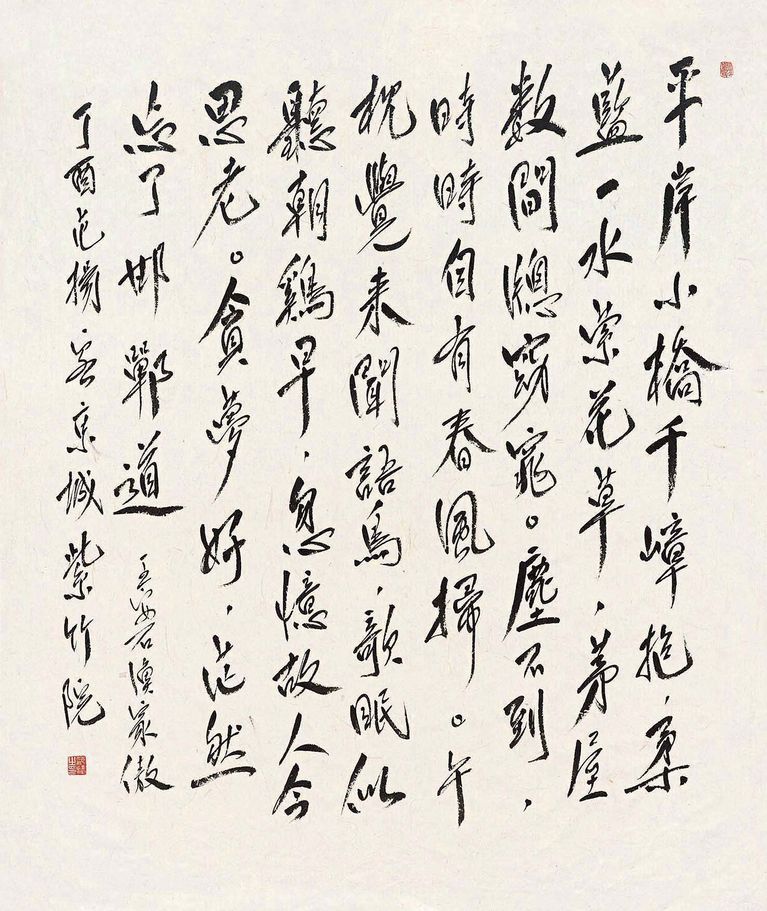 平岸小橋千嶂抱，柔
藍一水縈花草，茅屋
数間牕窈窕。塵不到，
時時自有春風掃。午
枕覺来聞語鳥，歌眠似
聽朝鷄早，忽憶故人今
思老。貪夢好，茫然
忘了邯鄲道 王安石漁家傲
丁酉范揚客京城紫竹院